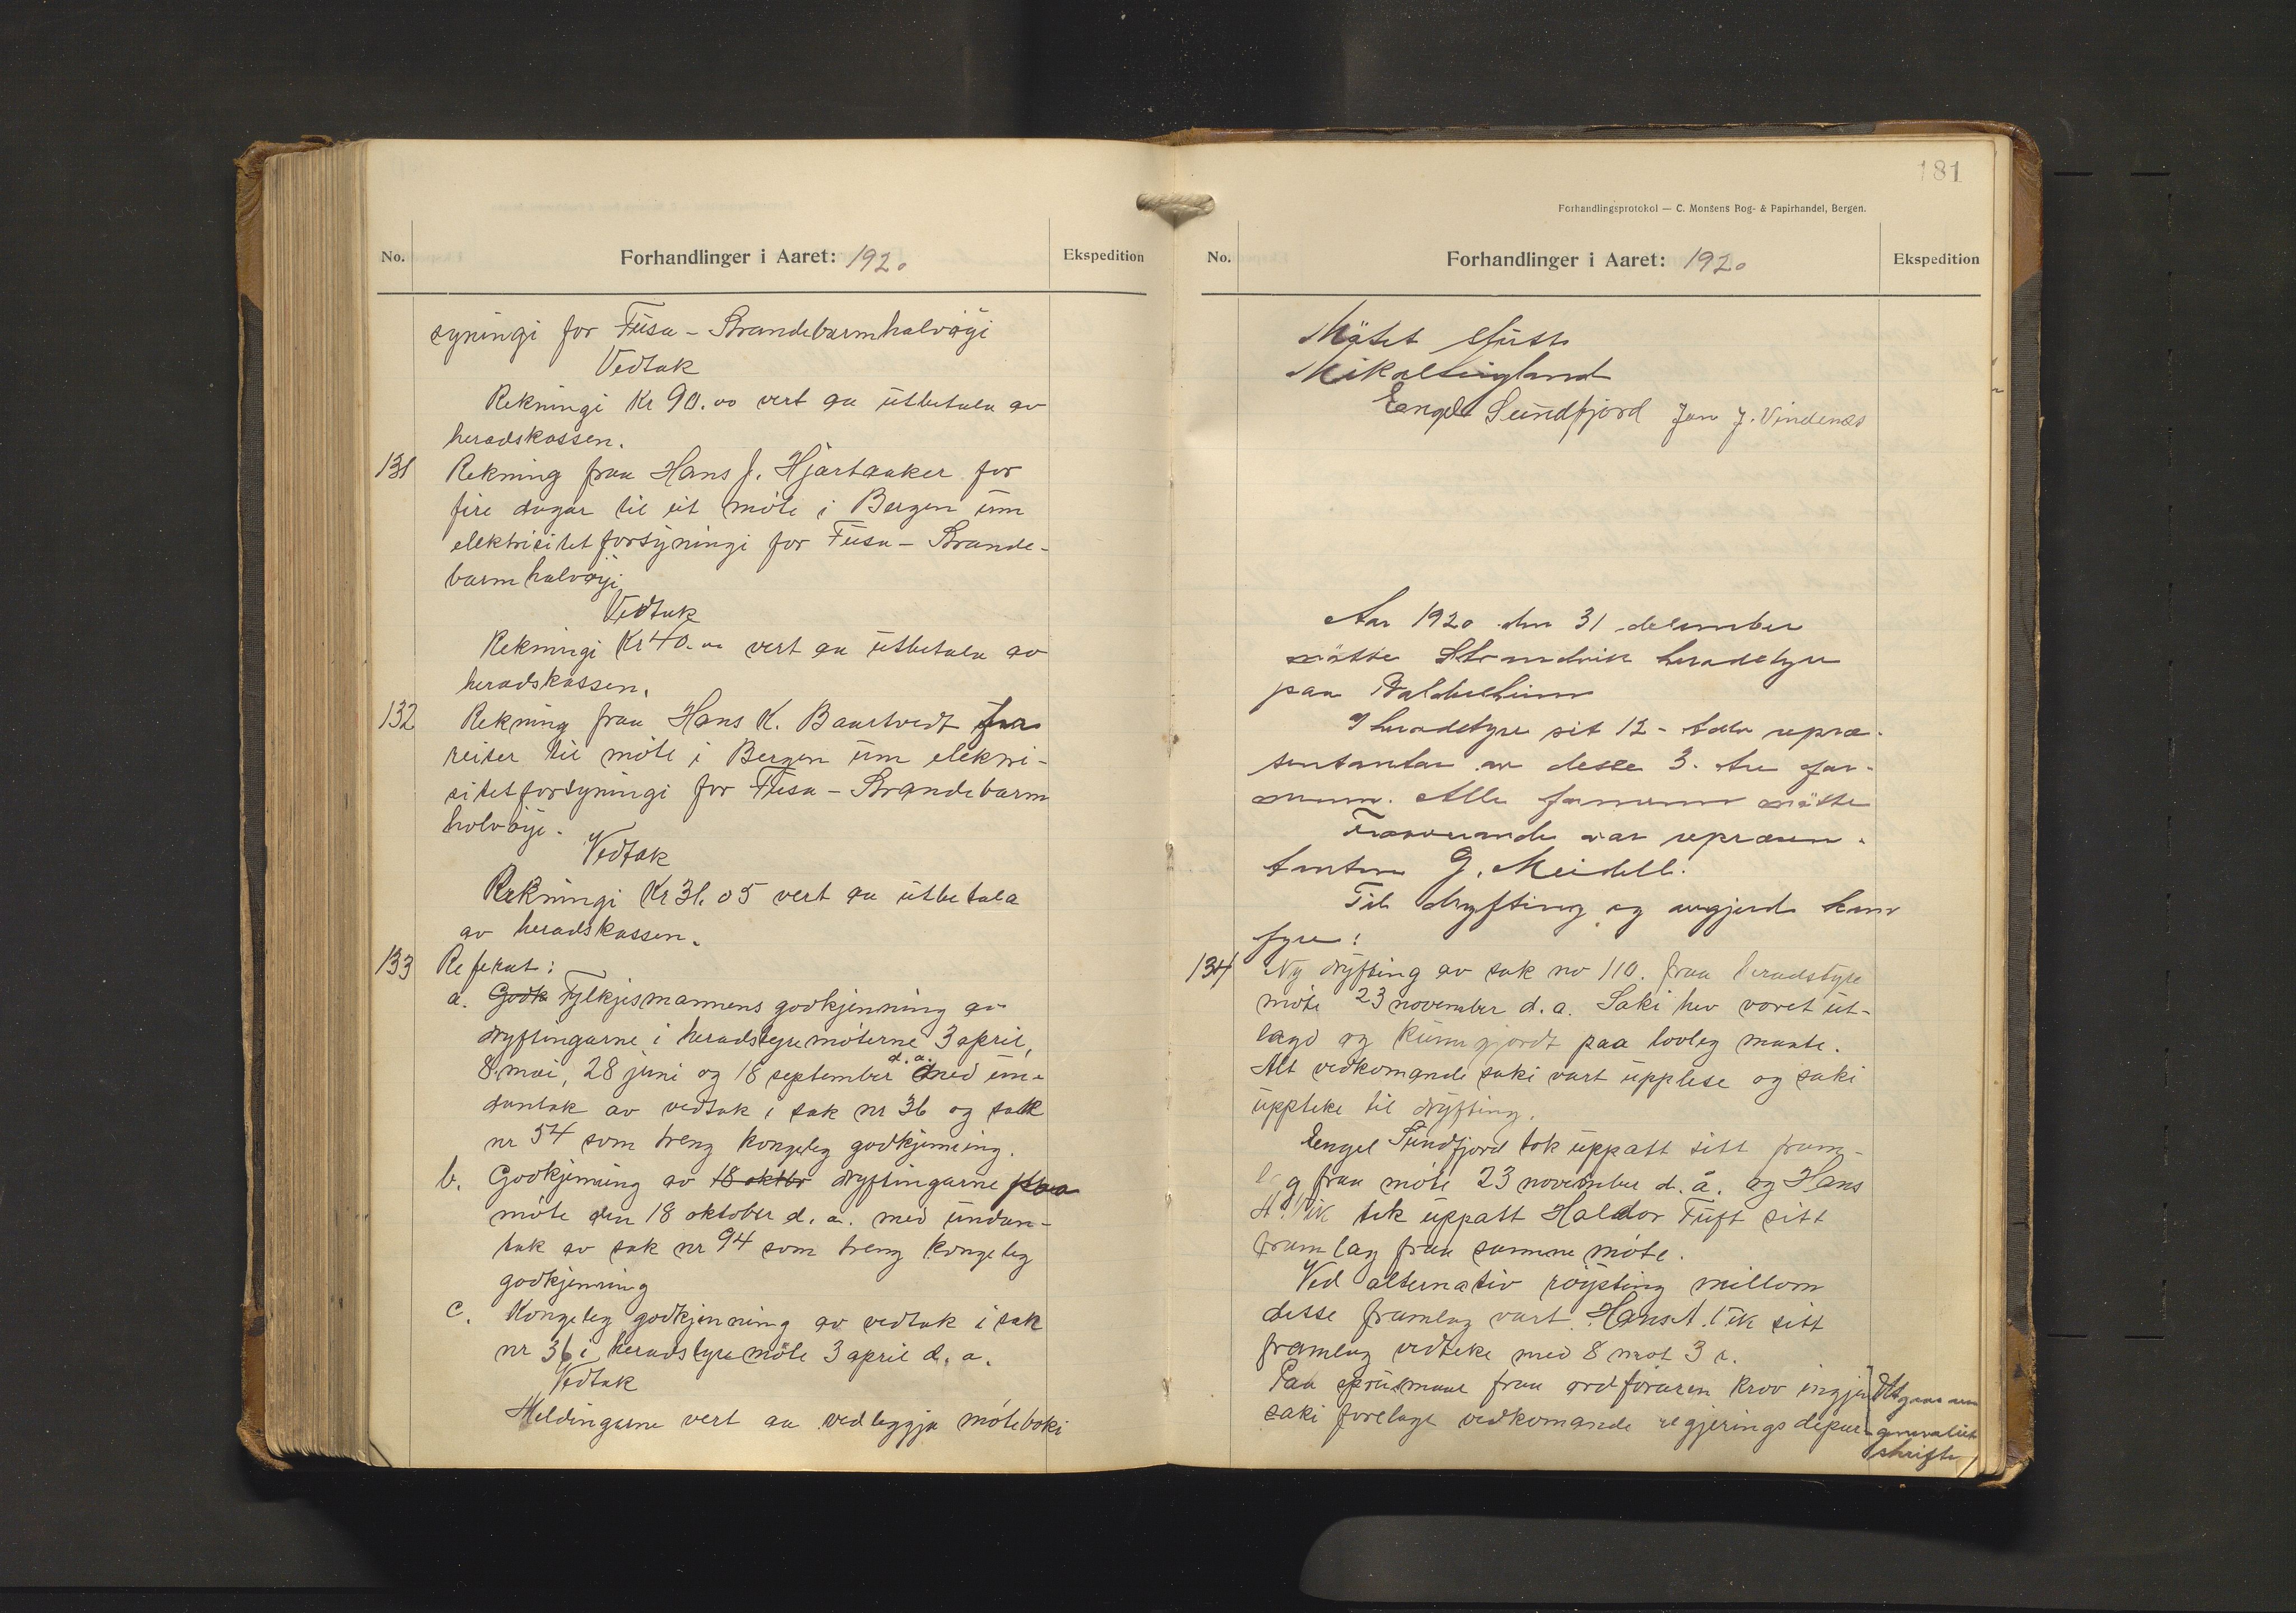 No.
Forhandlinger i Aaret: 1920
Ekspedition
syningi for Fusa - Strandebarmhalvøyi
Vedtak
Rekningi Kr 90.00 vert aa utbetala av
heradskassen.
131 Rekning fraa Hans J. Hjartaaker for
fire dagar til eit møte i Bergen um
elektrisitetforsyningi for Fusa - Strande-
barmhalvøyi
Vedtak
Rekningi Kr 40.00 vert aa utbetala av
heradskassen.
132 Rekning fraa Hans K. Baartvedt for
reiser til møte i Bergen um elektri-
sitetforsyningi for Fusa - Strandebarm
halvøyi.
Vedtak
Rekningi Kr 31.05 vert aa utbetala
av heradskassen.
133 Referat:
a. Godk Fylkjesmannens godkjenning av
dryftingarne i heradstyremøterne 3 april,
8. mai, 28 juni og 18 september d.a. med un-
dantak av vedtak i sak nr 36 og sak
nr 54 som treng kongeleg godkjenning.
b. Godkjenning av 18 oktbr dryftingarne fraa
møte den 18 oktober d. a. med undan-
tak av sak nr 94 som treng kongeleg
godkjenning
c. Kongeleg godkjenning av vedtak i sak
nr 36 i heradstyremøte 3 april d. a.
Vedtak
Meldingarne vert aa vedleggja møteboki
181
Forhandlingsprotokol — C. Monsens Bog- & Papirhandel, Bergen.
No.
Forhandlinger i Aaret: 1920
Ekspedition
Møtet slutt
Mikal Leigland
Engel Sundfjord Jon J. Vindenes
Aar 1920 den 31 desember
møtte Strandvik heradstyre
paa Baldersheim
I heradstyre sit 12 - tolv repræ-
sentantar av desse 3. tre for-
menn. Alle formenn møtte
Fraaverande var repræsen-
tanten G. Meidell.
Til dryfting og avgjerd kom
fyre:
134 Ny dryfting av sak no 110. fraa heradstyre
møte 23 november d. a. Saki hev voret ut-
lagd og kunngjordt paa lovleg maate.
Alt vedkomande saki vart upplese og saki
uppteke til dryfting.
Engel Sundfjord tok uppatt sitt fram-
lag fraa møte 23 november d. å. og Hans
A. Vik tok uppatt Haldor Tuft sitt
framlag fraa samme møte.
Ved alternativ røysting millom
desse framlag vart Hans A. Vik sitt
framlag vedteke med 8 mot 3 r.
Paa spursmaal fraa ordføraren krov ingjen
saki forelagt vedkomande regjeringsdepar-